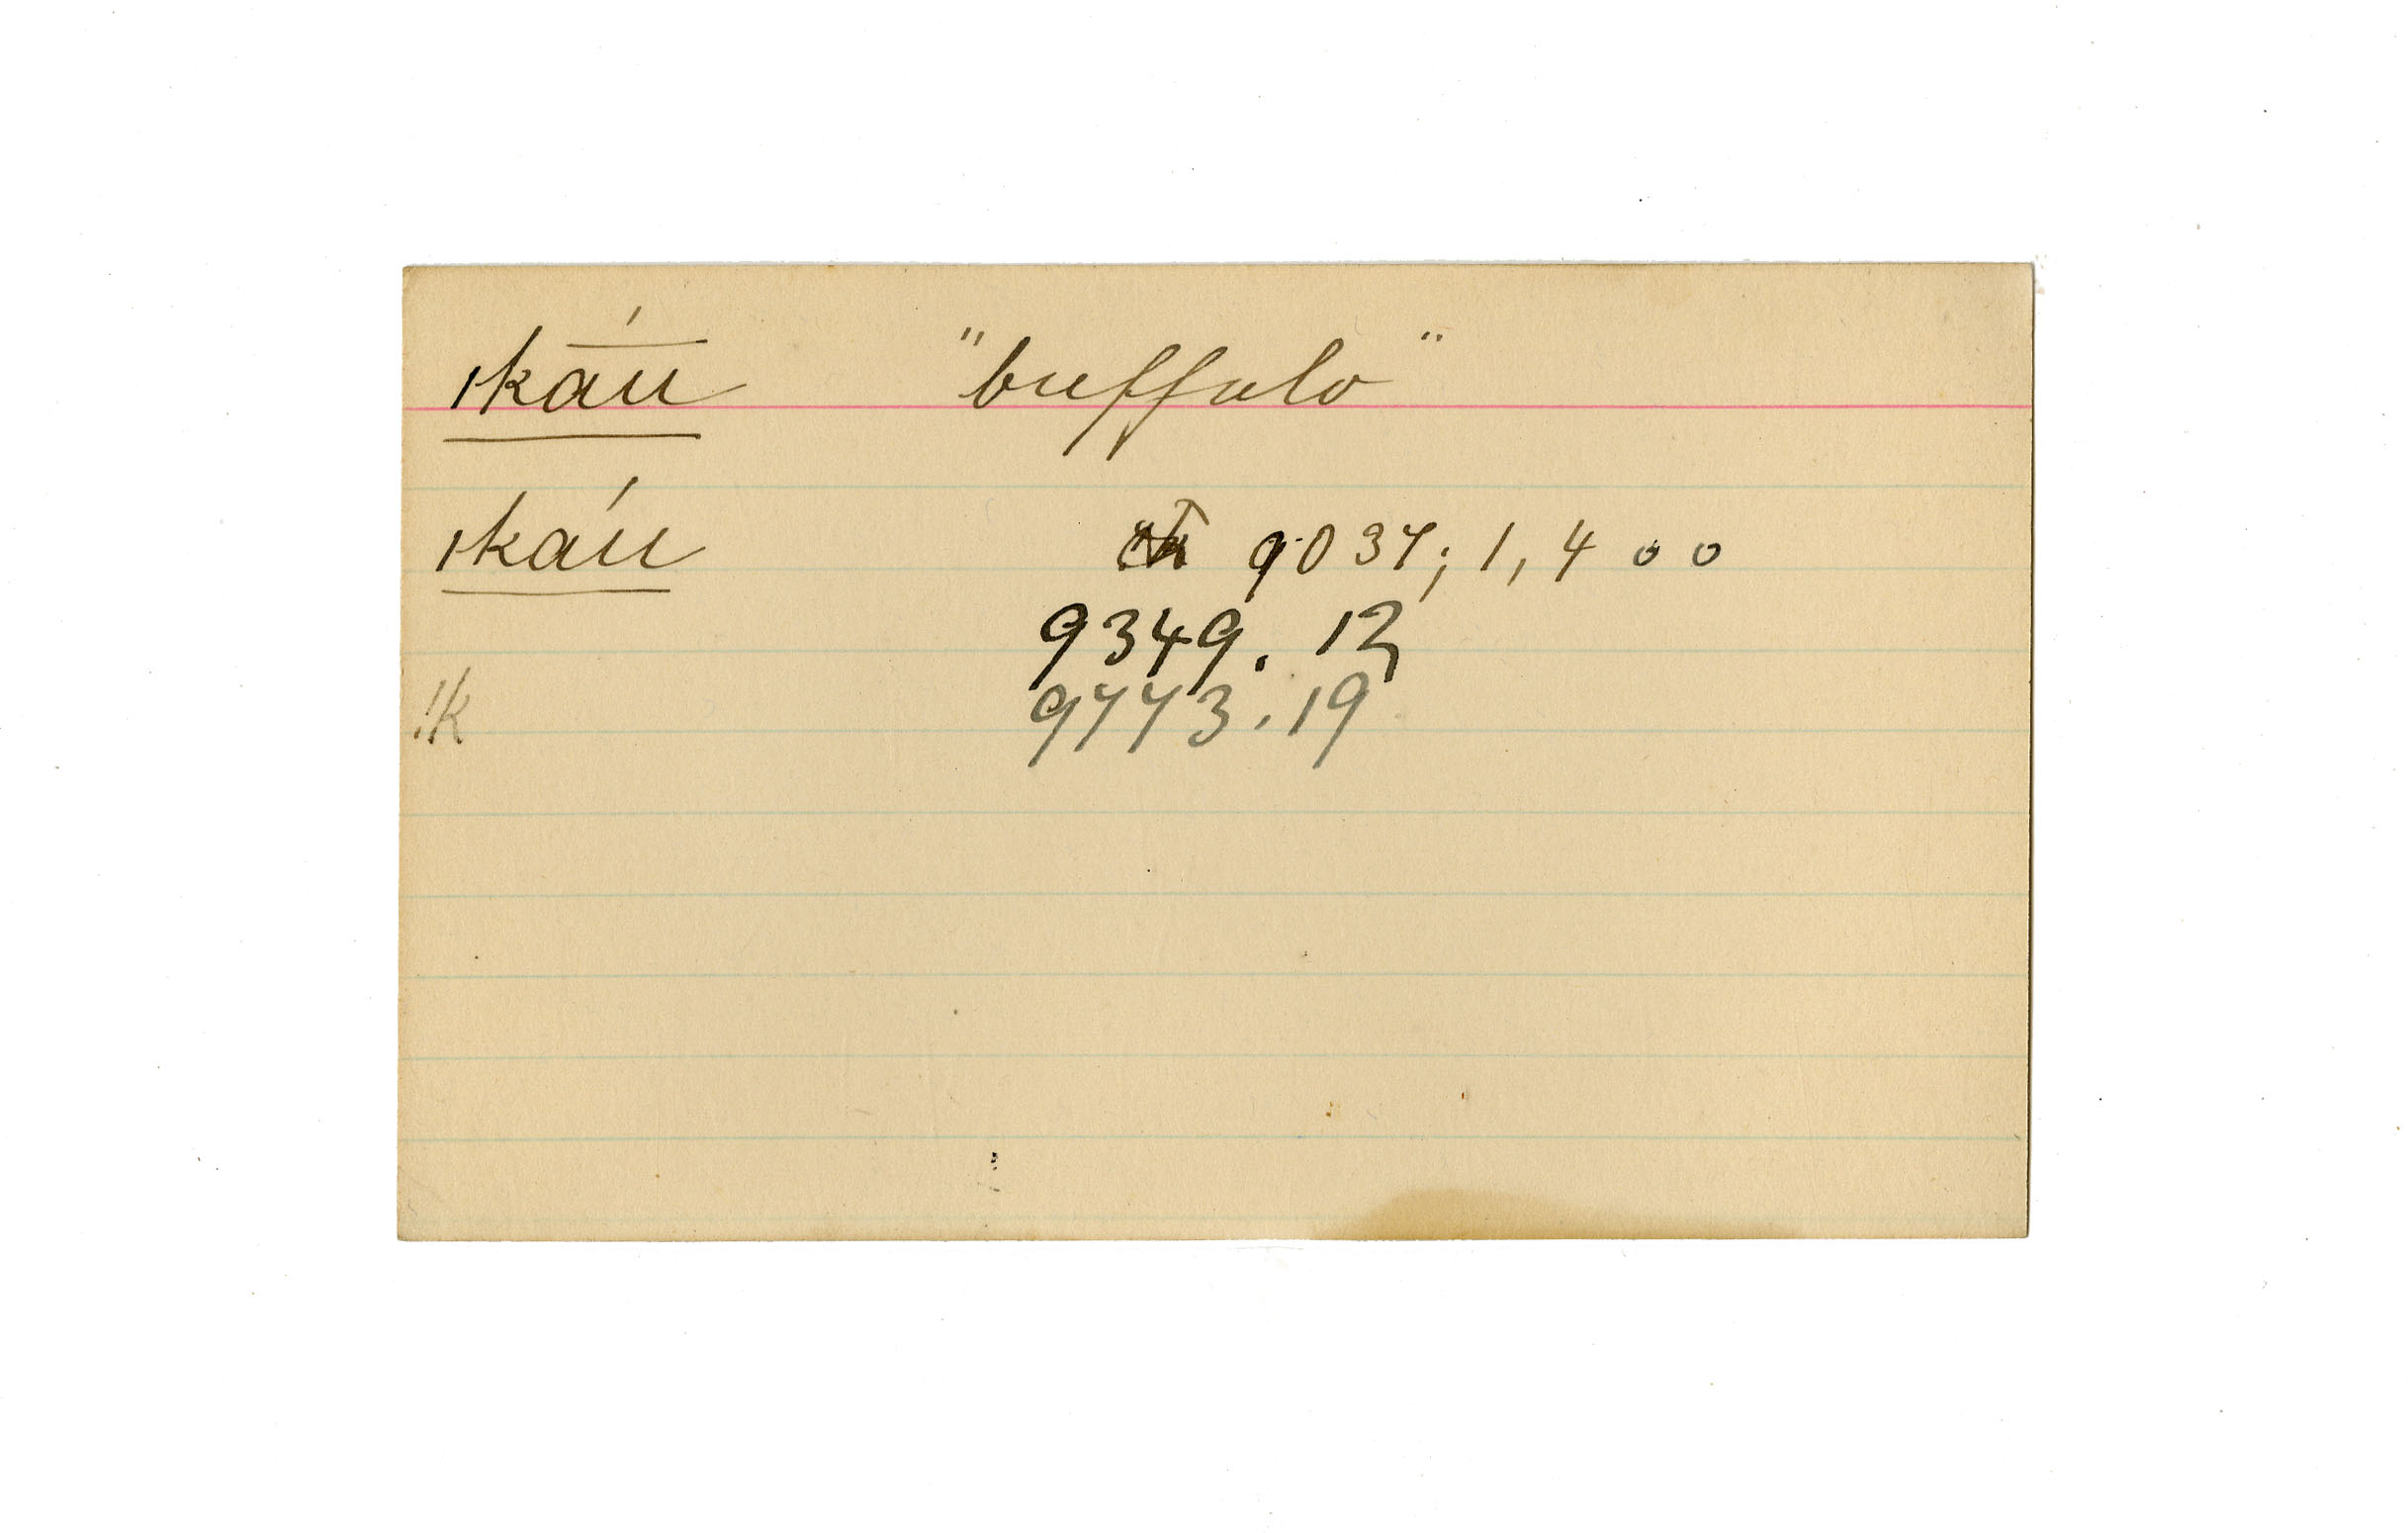 ıkáū "buffalo"
ıkáu 9037; 1, 4 o o
9349. 12
!k 9773. 19